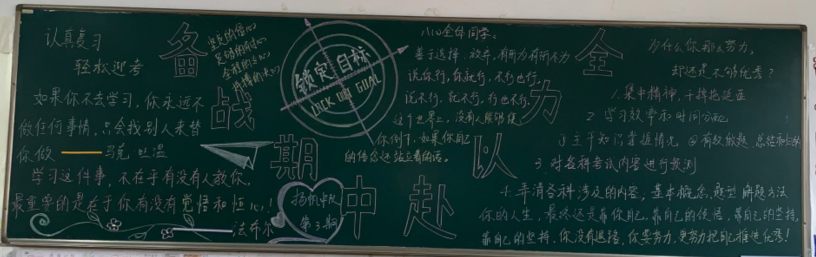 认真复习
轻松迎考
备战期中
全力以赴
如果你不去学习，你永远不
做任何事情，只会找别人来替
你做——马克吐温
学习这件事，不在于有没有人教你，
最重要的是在于你有没有觉悟和恒心！
——法布尔
锁定目标
LOCK ON GOAL
扬帆中队
第3期
八(1)全体同学：
善于选择、放弃，有所为有所不为
说你行，你就行，不行也行，
说不行，就不行，行也不行，
这个世界上，没有人能够使
你倒下，如果你自己
的信念还站立着的话。
为什么你那么努力，
却还是不够优秀？
1.集中精神，干掉拖延症
2.学习效率和时间分配
3.对各科考试内容进行预测
4.弄清各科涉及的内容，基本概念、题型、解题方法
你的人生，最终还是靠你自己，靠自己的信，靠自己的坚持，
靠自己的坚持，你没有退路，你要努力，更努力把自己推进优秀！